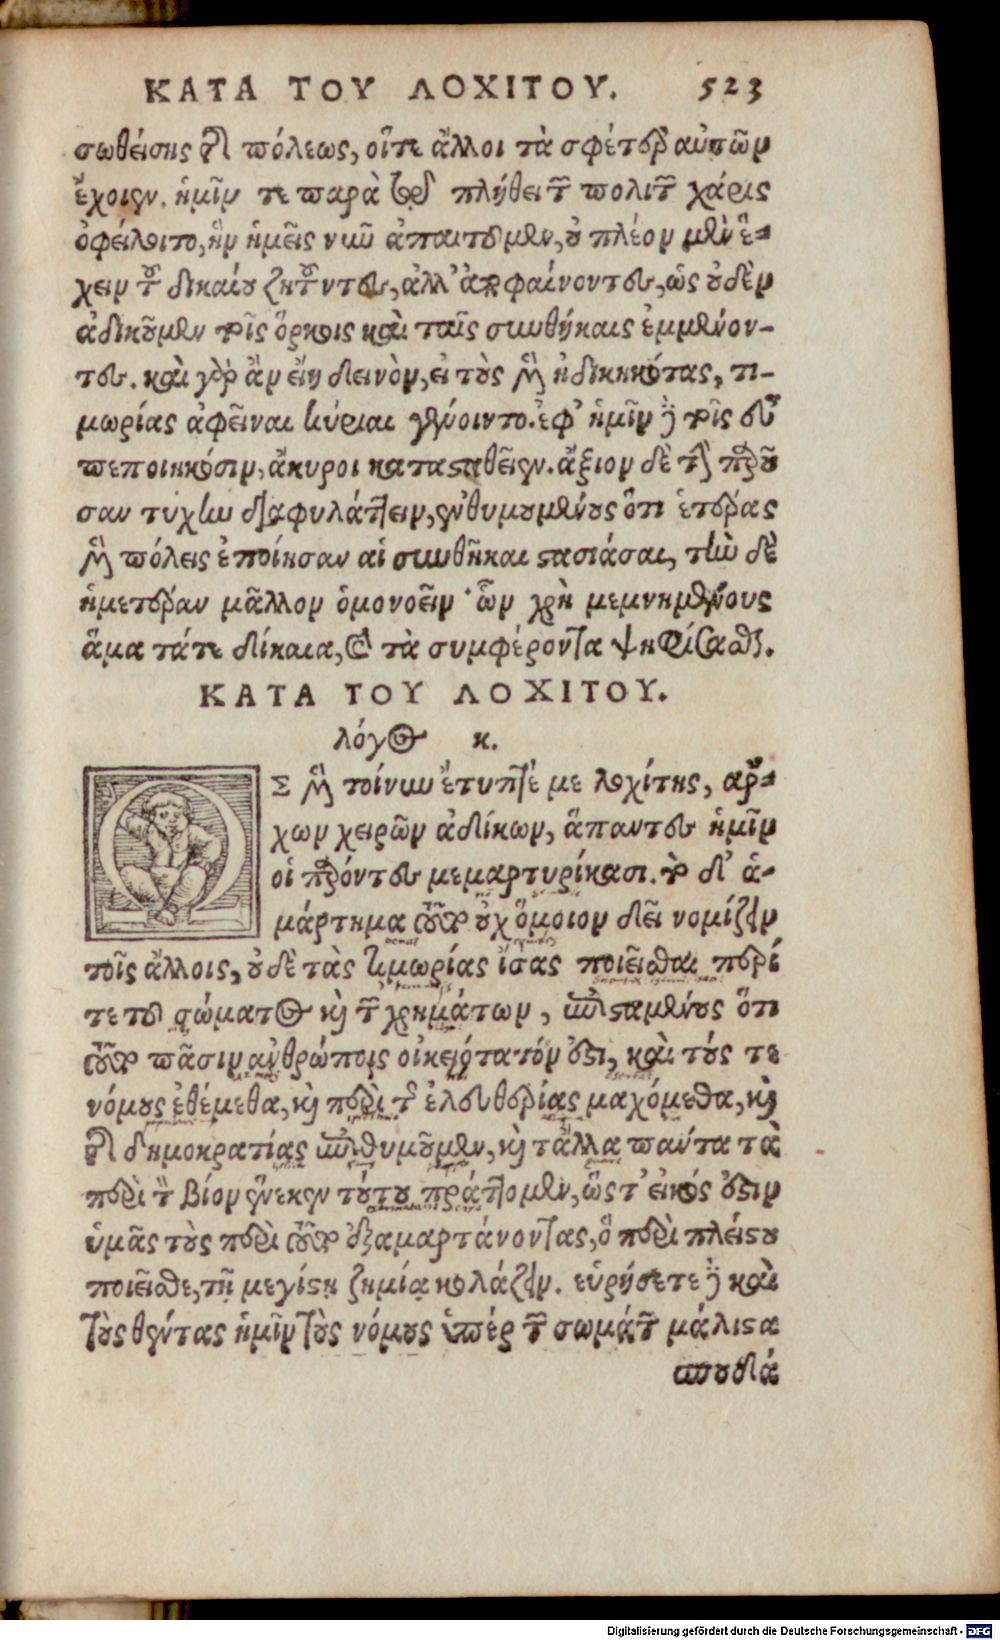 ΚΑΤΑ ΤΟΥ ΛΟΧΙΤΟΥ. 523
σωθείσης τῆς πόλεως, οἵτε ἄλλοι τὰ σφέτερ' αὐτῶν
ἔχοιεν. ἡμῖν τε παρὰ τῷ πλήθει τῶν πολιτῶν χάρις
ὀφείλοιτο, ἣν ἡμεῖς νιῦ ἀπαιτοῦμεν, οὐ πλέον μὲν ἔ-
χειν τοῦ δικαίου ζητοῦντες, ἀλλ' ἀποφαίνοντες, ὡς οὐδὲν
ἀδικοῦμεν τοῖς ὅρκοις καὶ ταῖς συνθήκαις ἐμμένον-
τες. καὶ γὰρ ἂν εἴη δεινὸν, εἰ τοὺς μὲν ἠδικηκότας, τι-
μωρίας ἀφεῖναι κύριαι γένοιντο. ἐφ' ἡμῖν δὲ τοῖς εὖ
πεποιηκόσιν, ἄκυροι κατασταθεῖεν. ἄξιον δὲ τὴν παροῦ
σαν τύχην διαφυλάττειν, ἐνθυμουμένους ὅτι ἑτέρας
μὲν πόλεις ἐποίησαν αἱ συνθῆκαι στασιάσαι, τὴν δὲ
ἡμετέραν μᾶλλον ὁμονοεῖν· ὧν χρὴ μεμνημένους
ἅμα τάτε δίκαια, καὶ τὰ συμφέροντα ψηφίσασθαι.
ΚΑΤΑ ΤΟΥ ΛΟΧΙΤΟΥ.
λόγος κ.
ΩΣ μὲν τοίνυν ἔτυπτέ με λοχίτης, ἄρ-
χων χειρῶν ἀδίκων, ἅπαντες ἡμῖν
οἱ παρόντες μεμαρτυρήκασι. τὸ δ' ἁ-
μάρτημα τοῦτο οὐχ ὅμοιον δεῖ νομίζειν
τοῖς ἄλλοις, οὐδὲ τὰς τιμωρίας ἴσας ποιεῖσθαι περί
τε τοῦ σώματος καὶ τῶν χρημάτων, ἐπισταμένους ὅτι
τοῦτο πᾶσιν ἀνθρώποις οἰκειότατόν ἐστι, καὶ τούς τε
νόμους ἐθέμεθα, καὶ περὶ τῆς ἐλευθερίας μαχόμεθα, καὶ
τῆς δημοκρατίας ἐπιθυμοῦμεν, καὶ τἄλλα πάντα τὰ
περὶ τὸν βίον ἕνεκεν τούτου πράττομεν, ὥς τ' εἰκός ἐστιν
ὑμᾶς τοὺς περὶ τοῦτο ἐξαμαρτάνοντας, ὃ περὶ πλείστου
ποιεῖσθε, τῇ μεγίστῃ ζημίᾳ κολάζειν. εὑρήσετε δὲ καὶ
τοὺς θέντας ἡμῖν τοὺς νόμους ὑπὲρ τῶν σωμάτων μάλιστα
σπουδά
Digitalisierung gefördert durch die Deutsche Forschungsgemeinschaft - DFG